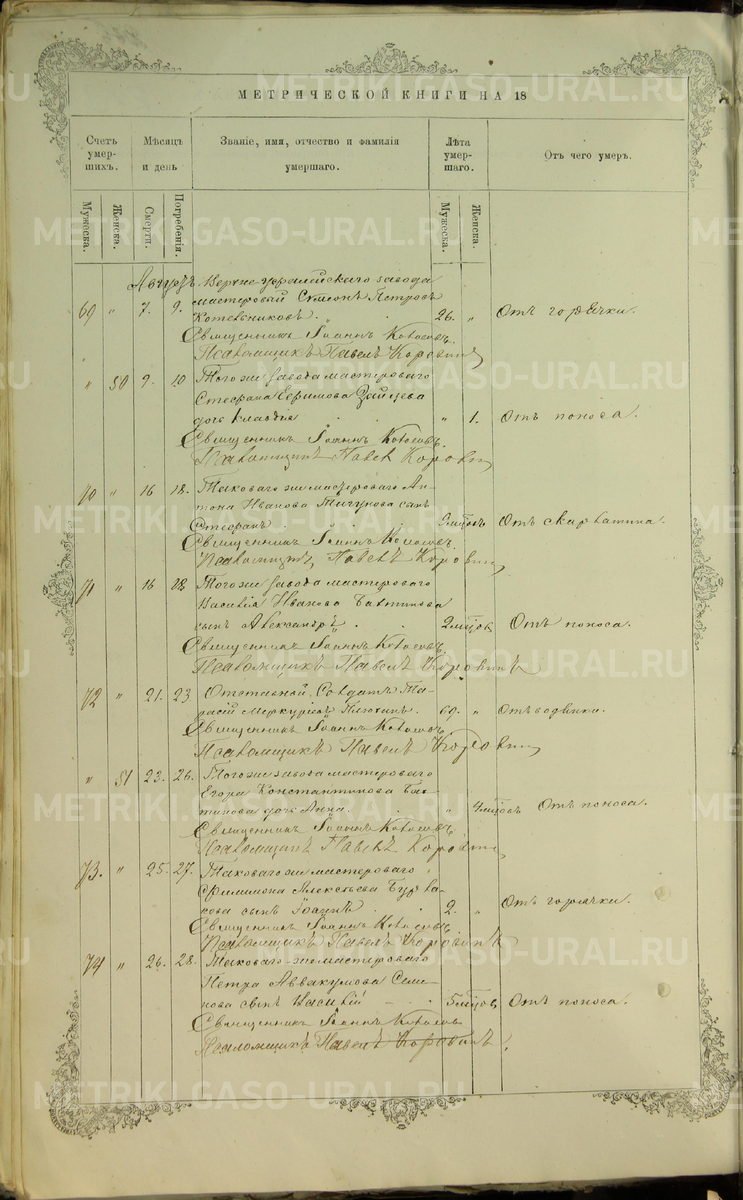 МЕТРИЧЕСКОЙ КНИГИ НА 18
Счетъ умершихъ.
Мѣсяцъ и день
Званіе, имя, отчество и фамилія умершаго.
Лѣта умершаго.
Отъ чего умеръ.
Мужеска.
Женска.
Смерти.
Погребенія.
Мужеска.
Женска.
Августъ. Верхне-уфалейскаго завода
69 " 7. 9. мастеровый Симеонъ Петровъ
Котельниковъ. 26. " Отъ горячки.
Священникъ Іоаннъ
Псаломщикъ Павелъ Коровинъ
" 50 9. 10 Тогоже завода мастероваго
Стефана Ефимова Зайцева
дочь Клавдія " 1. Отъ поноса.
Священникъ Іоаннъ
Псаломщикъ Павелъ Коровинъ
70 " 16 18. Таковагоже мастероваго Ан-
тона Иванова сынъ
Стефанъ. Отъ скарлатины.
Священникъ Іоаннъ
Псаломщикъ, Павелъ Коровинъ
71 " 16 18 Тогоже завода мастероваго
Василія Иванова
сынъ Александръ. 2 мѣсцов Отъ поноса.
Священникъ Іоаннъ
Псаломщикъ Павелъ Коровинъ
72 " 21. 23 Отставной Солдатъ Та-
расій Меркурьевъ 69. " Отъ водянки.
Священникъ Іоаннъ
Псаломщикъ Павелъ Коровинъ
" 51 23. 26. Тогоже завода мастероваго
Егора Константинова
дочь Анна. " 4 мѣсцовъ Отъ поноса.
Священникъ Іоаннъ
Псаломщикъ Павелъ Коровинъ
73. " 25. 27. Таковагоже мастероваго
Филимона Алексѣева Бурла-
кова сынъ Іоаннъ 2. " Отъ горячки.
Священникъ Іоаннъ
Псаломщикъ Павелъ Коровинъ
74 " 26. 28. Таковаго-же мастероваго
Петра Аввакумова Семе-
нова сынъ Василій 5 мѣсцов Отъ поноса.
Священникъ Іоаннъ
Псаломщикъ Павелъ Коровинъ.
METRIKI.GASO-URAL.RU